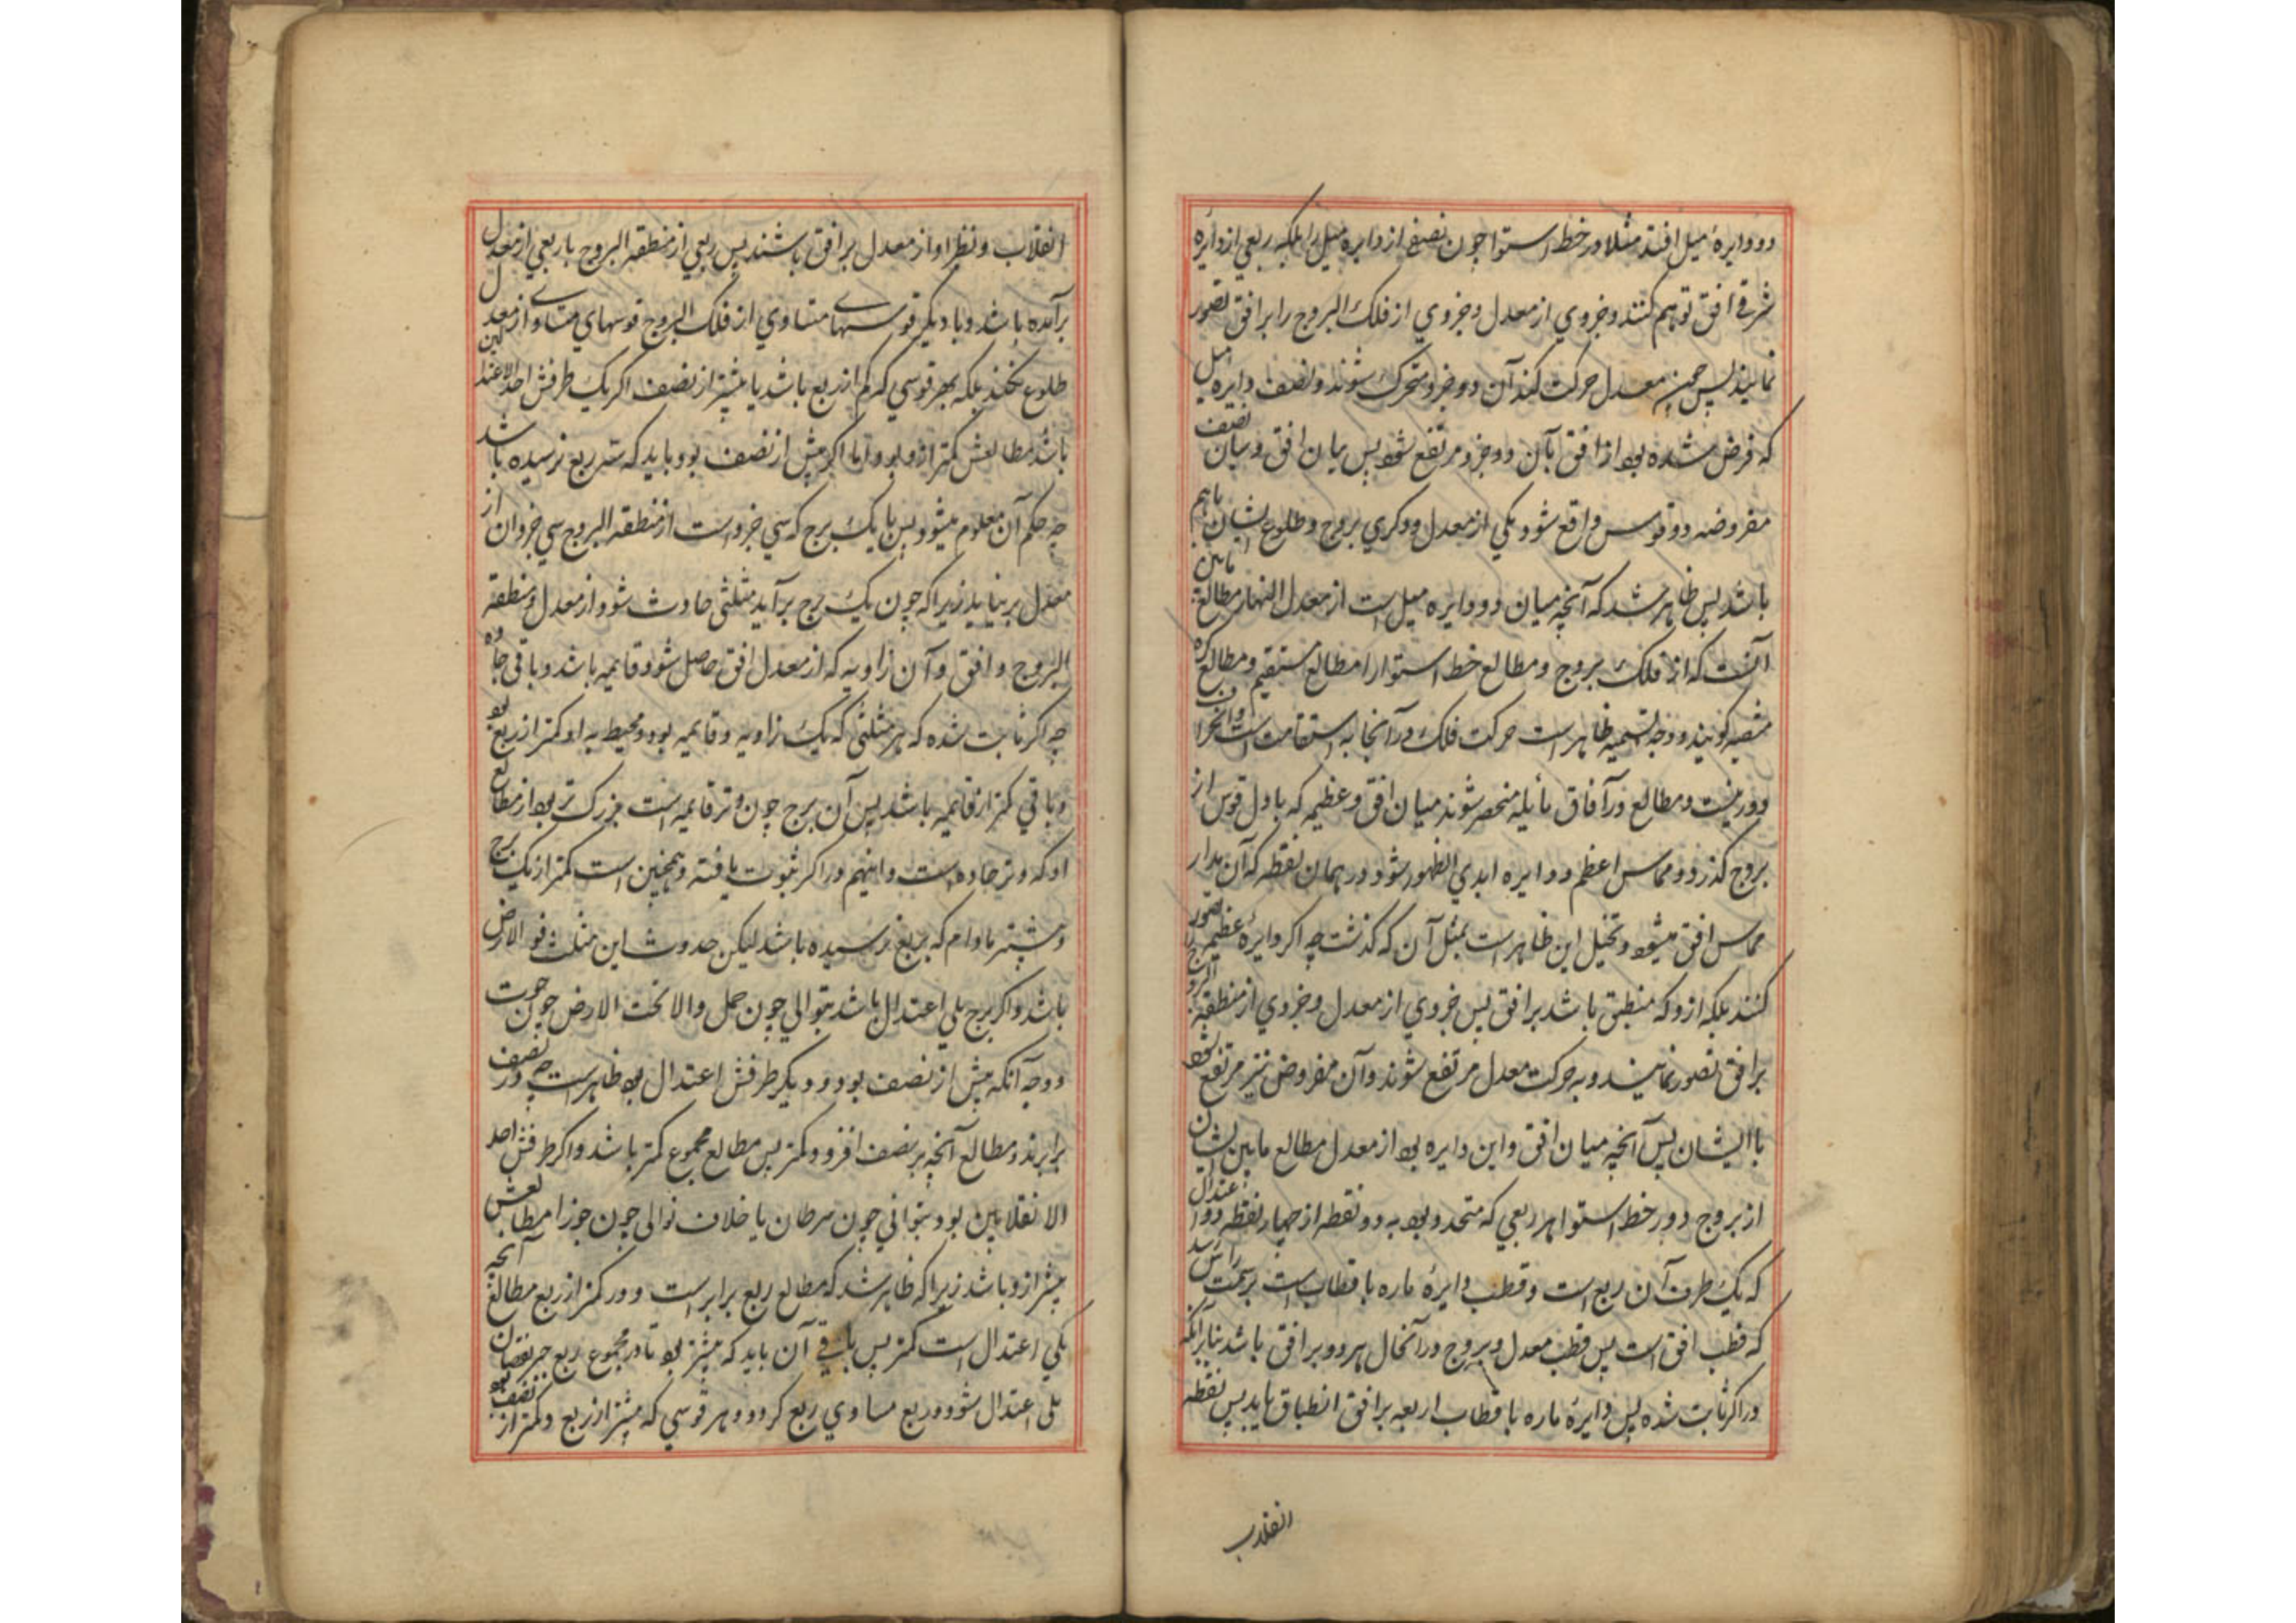 دو دایرهٔ میل افتد مثلا در خط استوا چون نصفی از دایره میل را بلکه ربعی از دایره
شرقی افق توهم کنند و جزوی از معدل و جزوی از فلک البروج را بر افق تصور
نمایند پس چون معدل حرکت کند آن دو جزو متحرک شوند و نصف دایره میل
که فرض شده بود از افق بآن دو جزو مرتفع شود پس میان افق و میان نصف
مفروضه دو قوس واقع شود یکی از معدل و دکری بروج و طلوع ایشان باهم
باشد پس ظاهر شد که آنچه میان دو دایره میل است از معدل النهار مطالع مابین
آنست که از فلک بروج و مطالع خط استوا را مطالع مستقیم و مطالع کره
منتصبه کویند و وجه تسمیه ظاهر است حرکت فلک در آنجا به استقامت است و انحراف
دور نیست و مطالع در آفاق مائله منحصر شوند میان افق و عظیمه که باول قوس از
بروج کذرد و مماس اعظم دوایر ابدی الظهور شود در همان نقطه که آن مدار
مماس افق میشود و تخیل این ظاهر است بمثل آن که کذشت چه اکر دایرهٔ عظیمه تصور
کنند بلکه ازو که منطبق باشد بر افق پس جزوی از معدل و جزوی از منطقة البروج
بر افق تصور نمایند و به حرکت معدل مرتفع شوند و آن مفروض نیز مرتفع شود
با ایشان پس آنچه میان افق و این دایره بود از معدل مطالع مابین ایشان
از بروج و در خط استوا هر ربعی که متحدد بود به دو نقطه از چهار نقطه دو اعتدال
که یک طرف آن ربع است و قطب دایرهٔ ماره باقطاب است بر سمت راس رسد
که قطب افق است پس قطب معدل و بروج در آنحال هر دو بر افق باشد بنابرآنکه
در اکر ثابت شده پس دایرهٔ ماره باقطاب اربعه بر افق انطباق یابد پس نقطه
انقلاب
انقلاب و نظر او از معدل بر افق باشند پس ربعی از منطقة البروج با ربعی از معدل
برآمده باشد و با دیکر قوسهای متساوی از فلک البروج قوسهای متساوی از معدل
طلوع نکند بلکه بهر قوسی که کم از ربع باشد یا بیشتر از نصف اکر یک طرفش احد الاعتدالین
باشد مطالعش کمتر ازو بود و اما اکر بیش از نصف بود باید که سه ربع نرسیده باشد
چه حکم آن معلوم میشود پس با یک برج که سی جزو است از منطقة البروج سی جزو ان از
معدل برنیاید زیرا که چون یک برج برآید مثلثی حادث شود از معدل و منطقة
البروج و افق و آن زاویه که از معدل افق حاصل شود قایمه باشد و باقی حاده
چه اکر ثابت شده که هر مثلثی که یک زاویه و قایمه بود و محیط به او کمتر از ربع بود
و باقی کمتر از قایمه باشد پس آن برج چون وتر قایمه است بزرک تر بود از مطالع
او که وتر حاده است و اینهم در اکر ثبوت یافته و همچنین است کمتر از یک برج
و بیشتر مادام که بربع نرسیده باشد لیکن حدوث این مثلث فوق الارض
باشد و اکر برج یلی اعتدال باشد بتوالی چون حمل و الا تحت الارض چون حوت
و وجه آنکه بیش از نصف بود و دیکر طرفش اعتدال بود ظاهر است چه در نصف
برابرند و مطالع آنچه بر نصف افزود کمتر پس مطالع مجموع کمتر باشد و اکر طرفش احد
الانقلابین بود بتوالی چون سرطان یا خلاف توالی چون جوزا مطالعش
بیشتر ازو باشد زیرا که ظاهر شد که مطالع ربع برابر است و در کمتر از ربع مطالع آنچه
یکی اعتدال است کمتر پس باقی آن باید که بیشتر بود تا در مجموع ربع جبر نقصان
یلی اعتدال شود و ربع مساوی ربع کردد و هر قوسی که بیشتر از ربع و کمتر از نصف بود